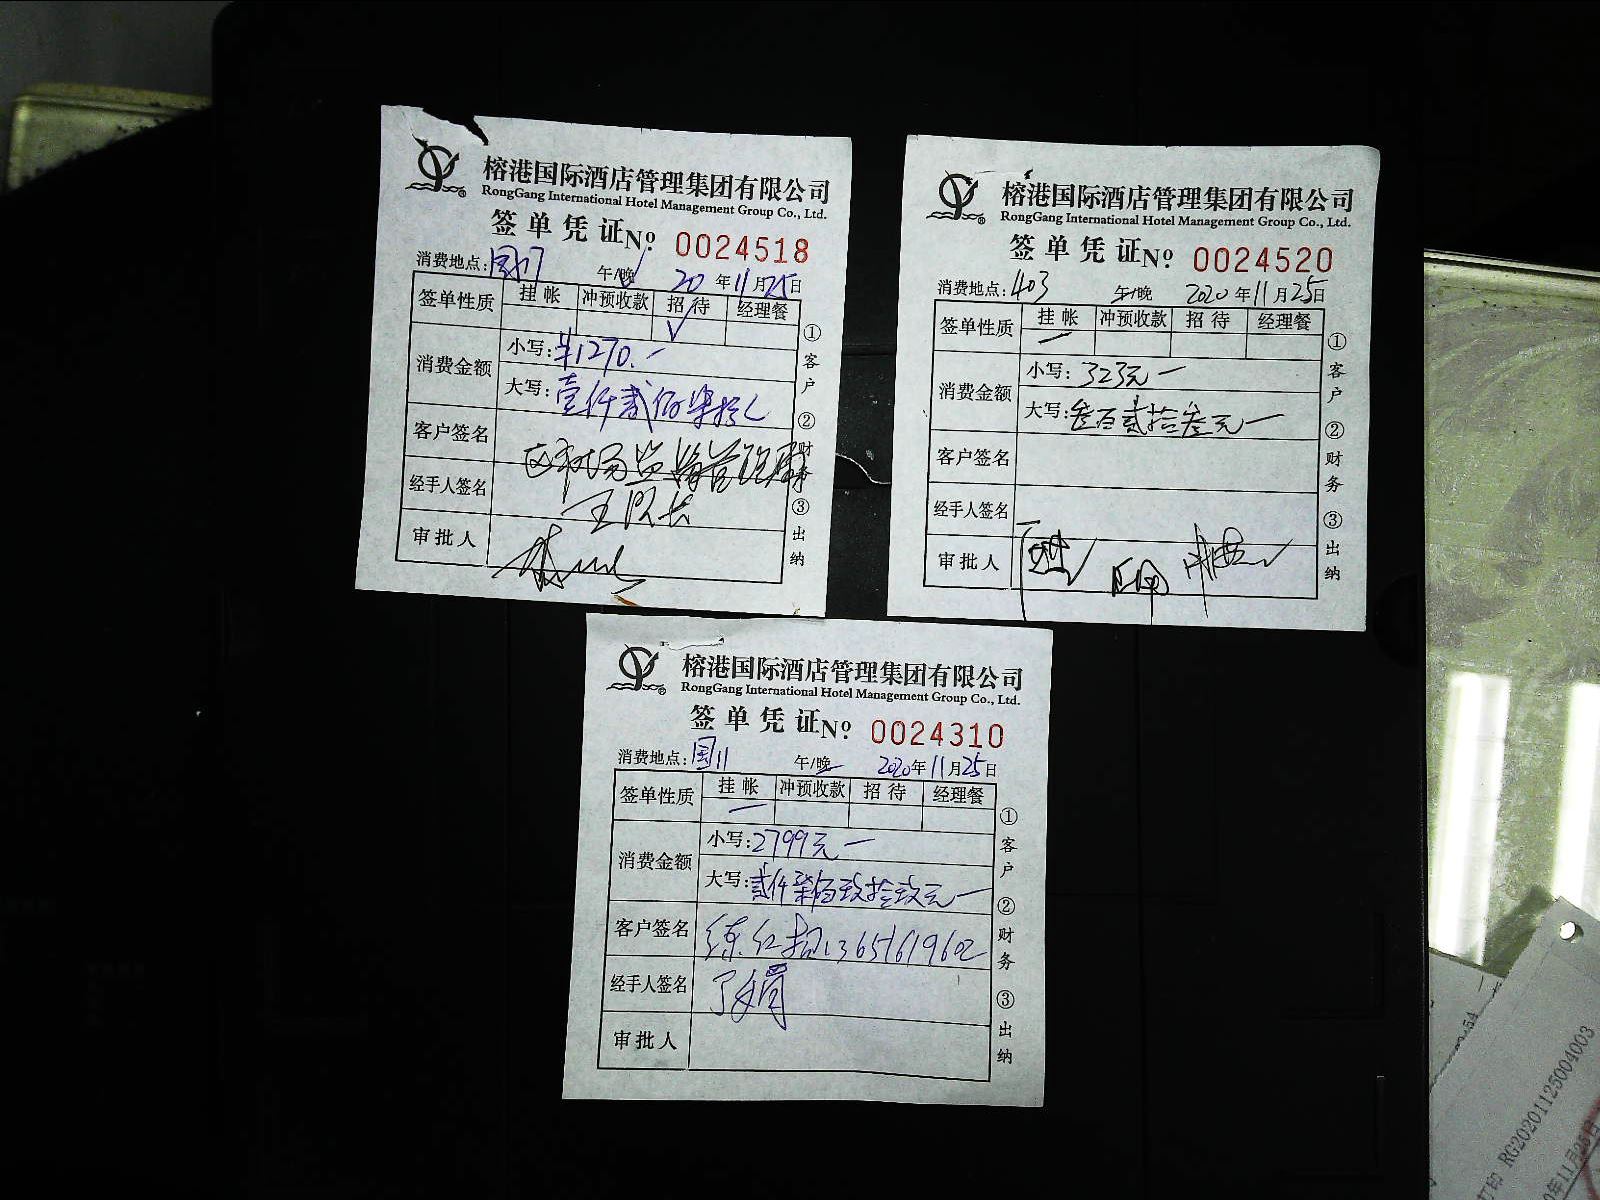 榕港国际酒店管理集团有限公司
RongGang International Hotel Management Group Co., Ltd.
签单凭证 No 0024518
消费地点: 午/晚 20 年 11 月 25 日
签单性质 挂帐 冲预收款 招待 经理餐
√
消费金额 小写: ¥1270.一
大写: 壹仟贰佰柒拾
客户签名 区市场监督管理局
经手人签名 王队长
审批人
① 客户 ② 财务 ③ 出纳
榕港国际酒店管理集团有限公司
RongGang International Hotel Management Group Co., Ltd.
签单凭证 No 0024520
消费地点: 403 午/晚 2020 年 11 月 25 日
签单性质 挂帐 冲预收款 招待 经理餐
一
消费金额 小写: 323元一
大写: 叁百贰拾叁元一
客户签名
经手人签名
审批人
① 客户 ② 财务 ③ 出纳
榕港国际酒店管理集团有限公司
RongGang International Hotel Management Group Co., Ltd.
签单凭证 No 0024310
消费地点: 国11 午/晚 2020 年 11 月 25 日
签单性质 挂帐 冲预收款 招待 经理餐
一
消费金额 小写: 2799元一
大写: 贰仟柒佰玖拾玖元一
客户签名 练红招 13651619602
经手人签名
审批人
① 客户 ② 财务 ③ 出纳
印 RG20201125004003
年11月25日
54